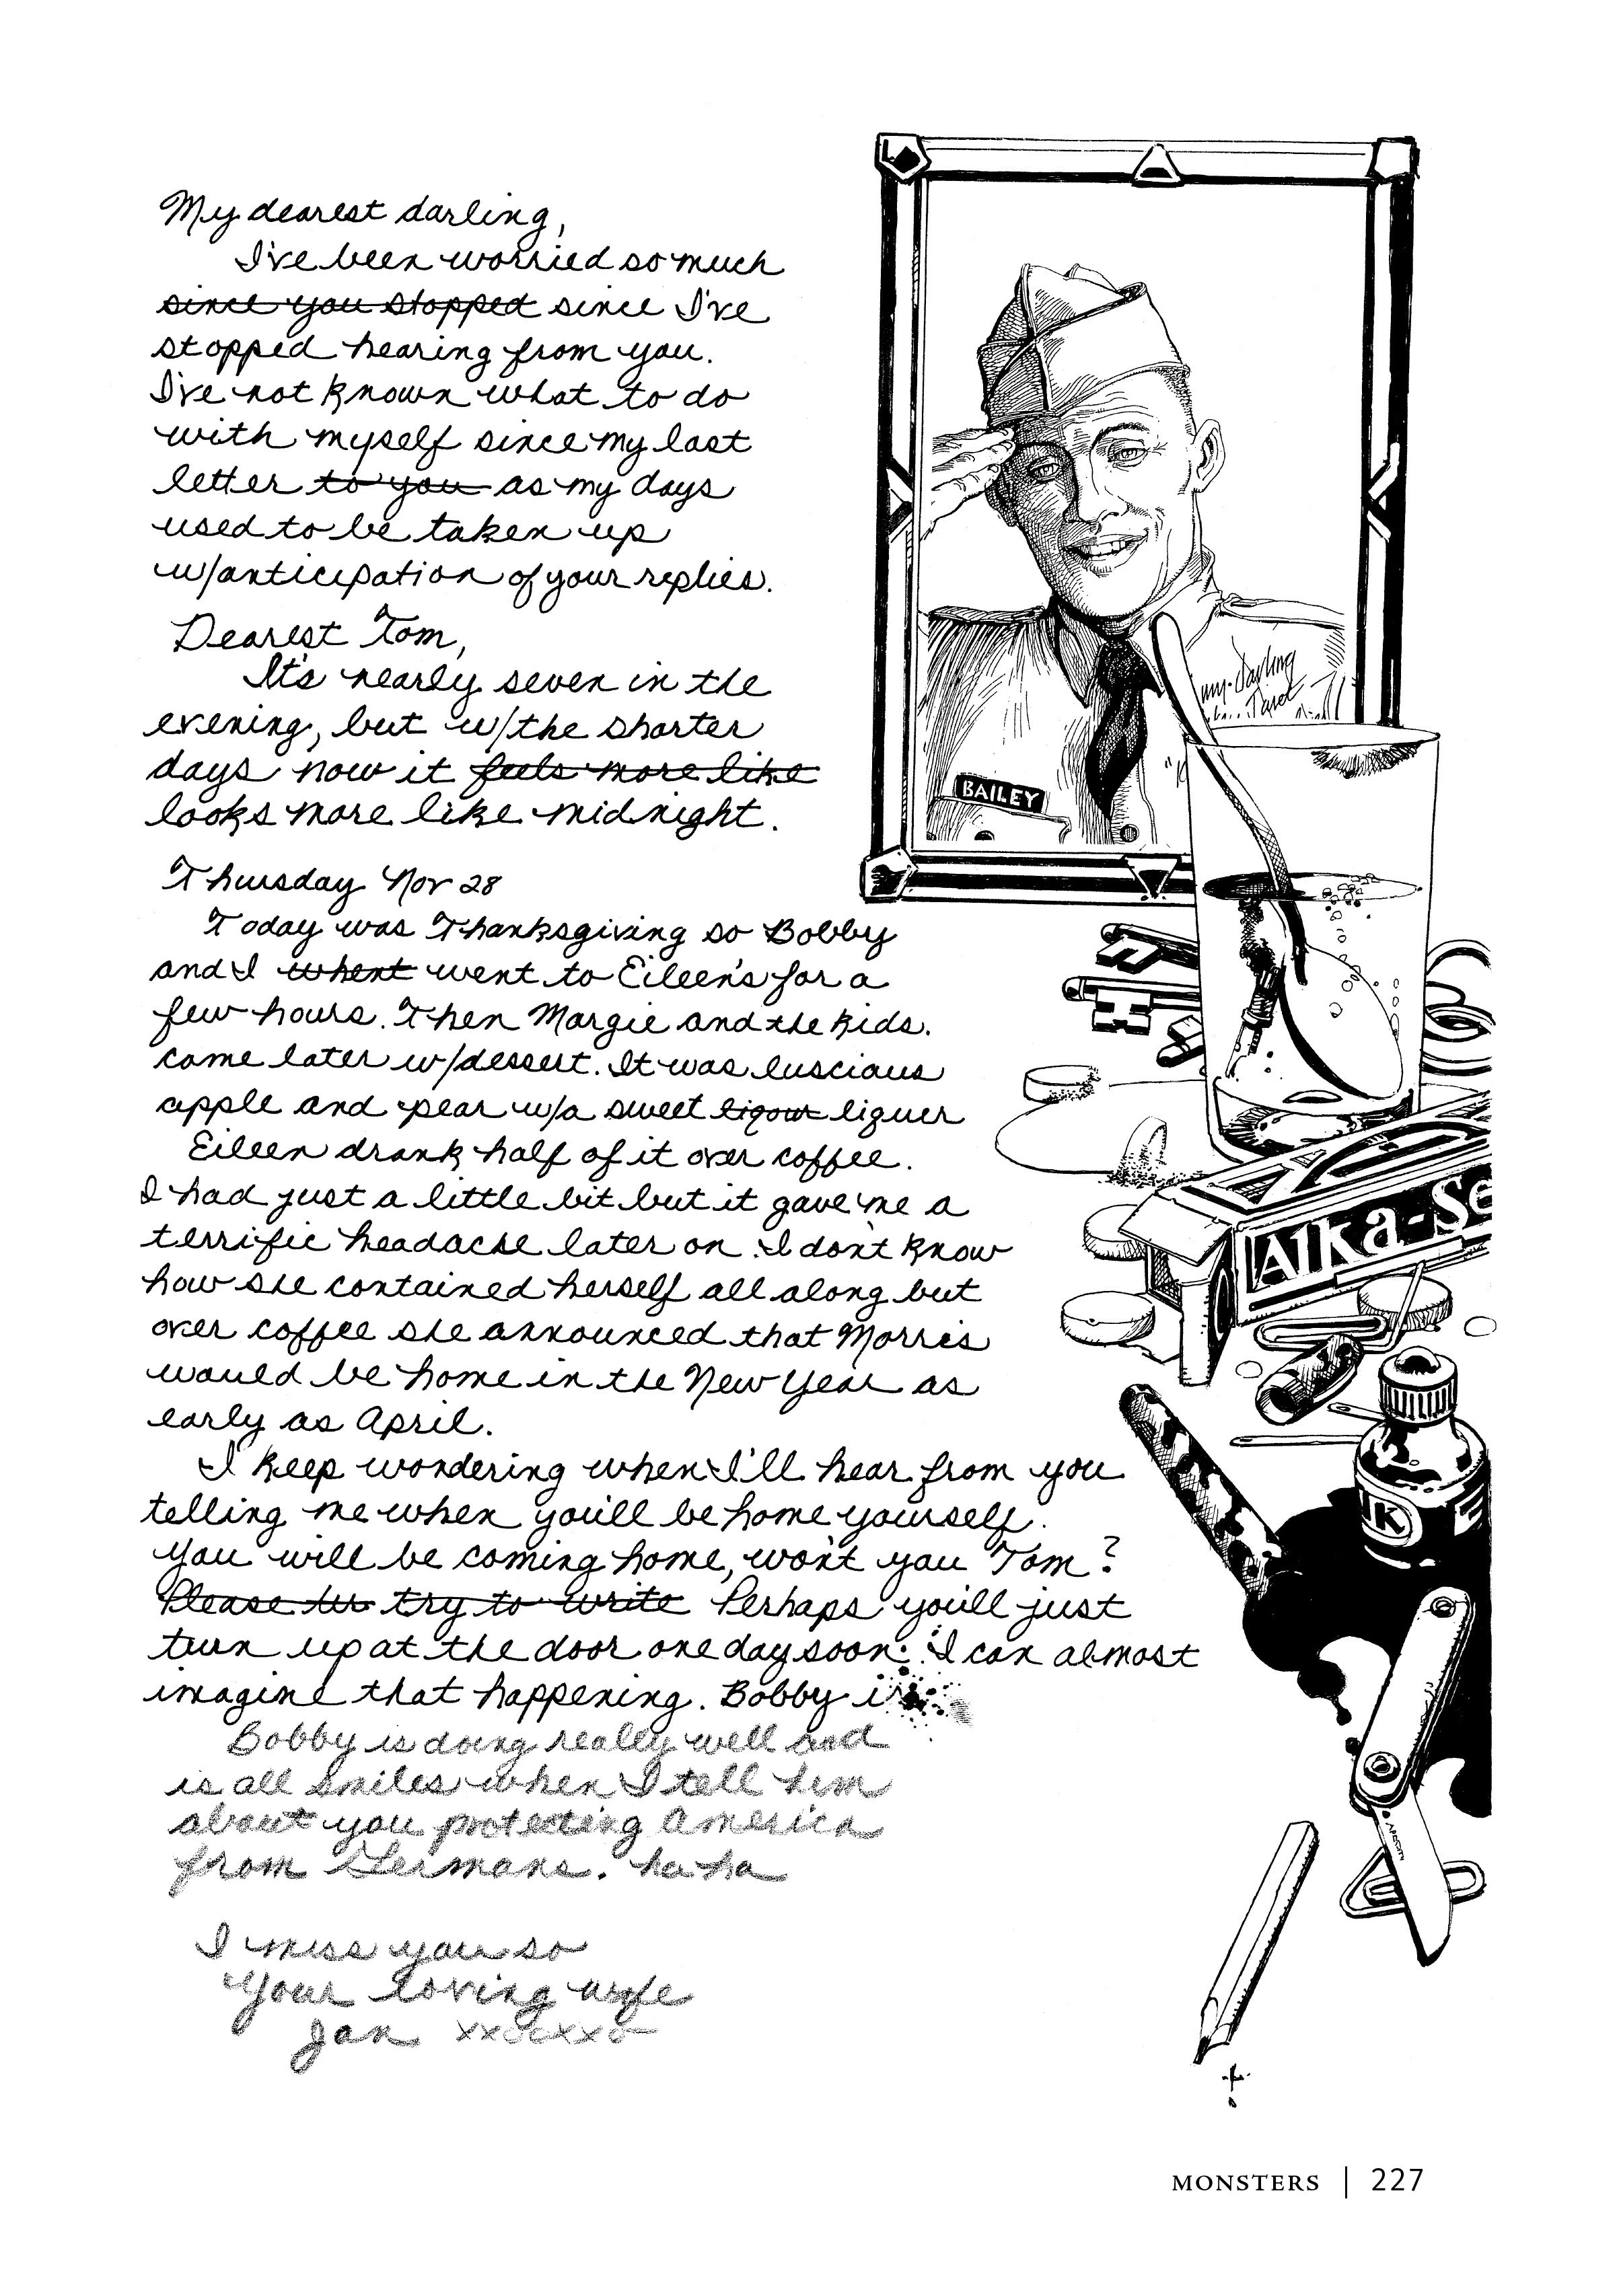 My dearest darling,
I've been worried so much
since you stopped since I've
stopped hearing from you.
I've not known what to do
with myself since my last
letter to you as my days
used to be taken up
w/anticipation of your replies.
Dearest Tom,
It's nearly seven in the
evening, but w/the shorter
days now it feels more like
looks more like midnight.
Thursday Nov 28
Today was Thanksgiving so Bobby
and I whent went to Eileen's for a
few hours. Then Margie and the kids.
came later w/dessert. It was luscious
apple and pear w/a sweet liqour liquer
Eileen drank half of it over coffee.
I had just a little bit but it gave me a
terrific headache later on. I don't know
how she contained herself all along but
over coffee she announced that Morris
would be home in the New Year as
early as April.
I keep wondering when I'll hear from you
telling me when you'll be home yourself.
You will be coming home, won't you Tom?
Please try to write Perhaps you'll just
turn up at the door one day soon. I can almost
imagine that happening. Bobby is
Bobby is doing really well and
is all smiles when I tell him
about you protecting America
from Germans. ha ha
I miss you so
Your loving wife
Jan xxooxxo
my Darling
BAILEY
Alka-Se
NK
MONSTERS | 227